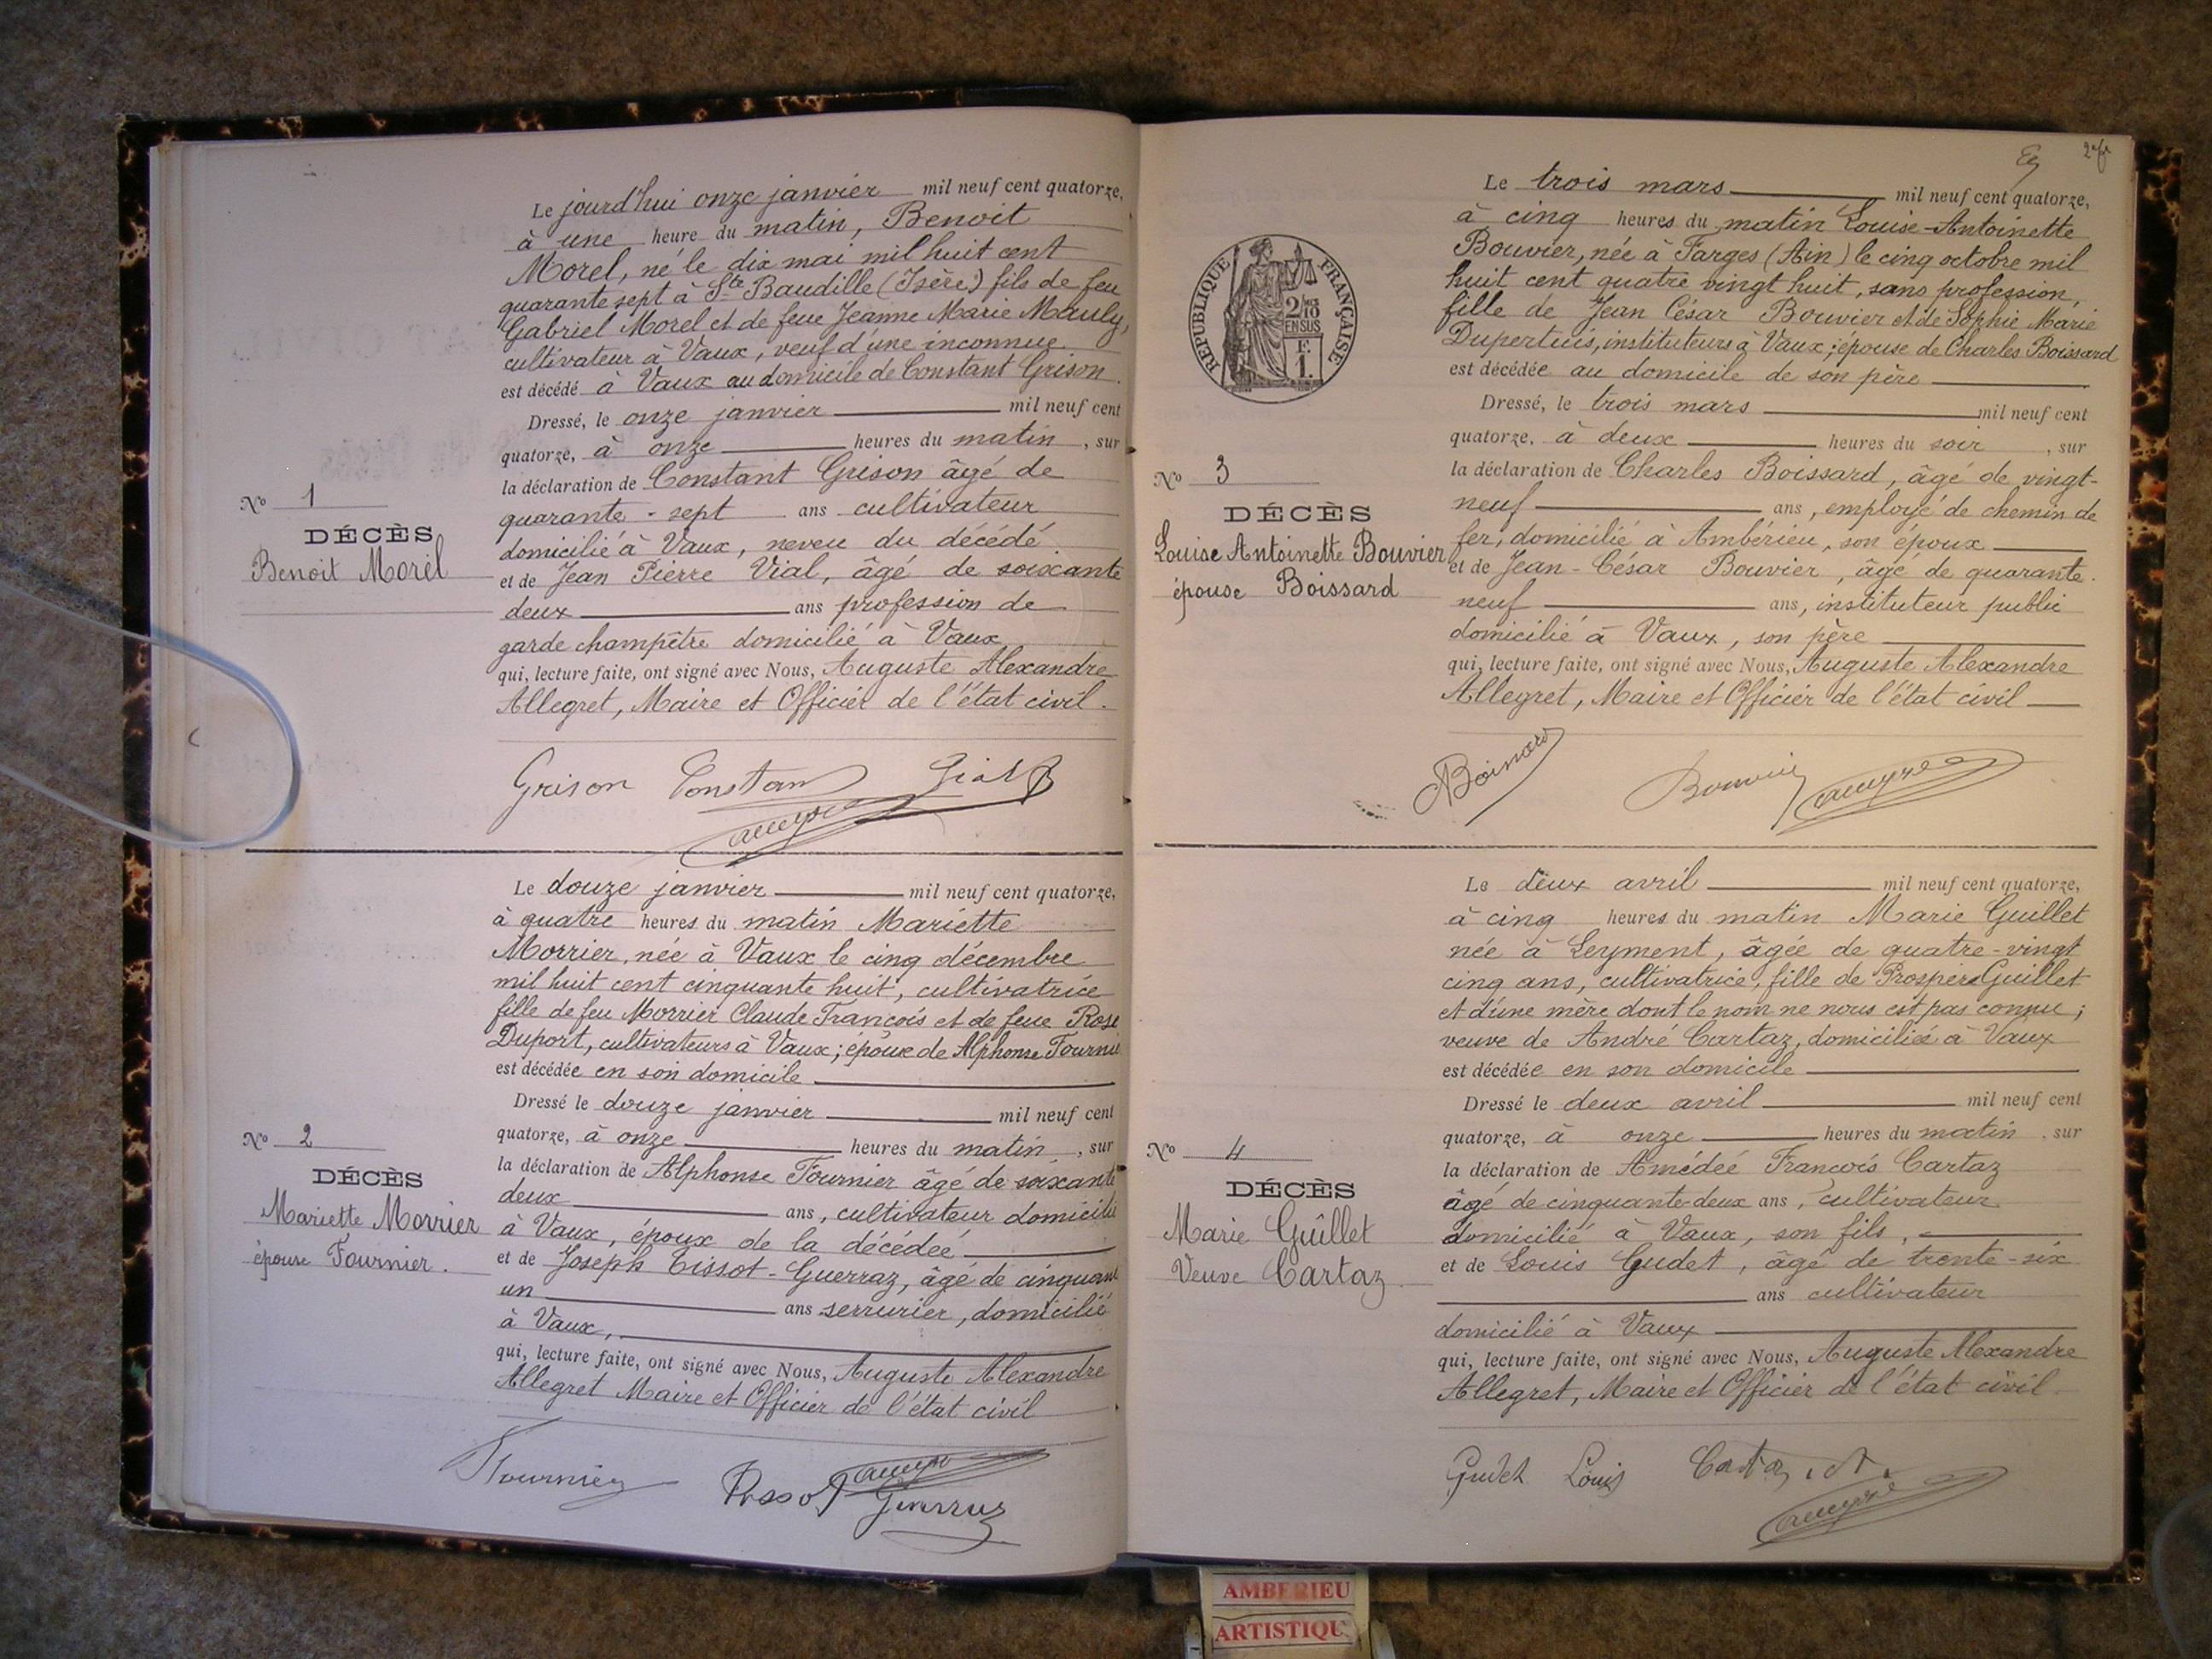 Le jourd'hui onze janvier mil neuf cent quatorze,
à une heure du matin, Benoit
Morel, né le dix mai mil huit cent
quarante sept à Ste Baudille (Isère) fils de feu
Gabriel Morel et de feue Jeanne Marie Mauly,
cultivateur à Vaux, veuf d'une inconnue
est décédé à Vaux au domicile de Constant Grison.
Dressé, le onze janvier mil neuf cent
quatorze, à onze heures du matin, sur
la déclaration de Constant Grison âgé de
quarante-sept ans cultivateur
domicilié à Vaux, neveu du décédé.
et de Jean Pierre Vial, âgé de soixante
deux ans profession de
garde champêtre domicilié à Vaux
qui, lecture faite, ont signé avec Nous, Auguste Alexandre
Allegret, Maire et Officier de l'état civil.
No 1
DÉCÈS
Benoit Morel
Grison Constan
Le douze janvier mil neuf cent quatorze,
à quatre heures du matin Mariette
Morrier, née à Vaux le cinq décembre
mil huit cent cinquante huit, cultivatrice
fille de feu Morrier Claude François et de feue Rose
Duport, cultivateurs à Vaux; épouse de Alphonse Fournie
est décédée en son domicile
Dressé le douze janvier mil neuf cent
quatorze, à onze heures du matin, sur
la déclaration de Alphonse Fournier âgé de soixante
deux ans, cultivateur domicilié
à Vaux, époux de la décédée
et de Joseph Tissot-Guerraz, âgé de cinquant
un ans serrurier, domicilié
à Vaux,
qui, lecture faite, ont signé avec Nous, Auguste Alexandre
Allegret Maire et Officier de l'état civil
No 2
DÉCÈS
Mariette Morrier
épouse Fournier.
Fournier
2
Le trois mars mil neuf cent quatorze,
à cinq heures du matin Louise-Antoinette
Bouvier, née à Farges (Ain) le cinq octobre mil
huit cent quatre vingt huit, sans profession,
fille de Jean César Bouvier et de Sophie Marie
Dupertuis, instituteurs à Vaux; épouse de Charles Boissard
est décédée au domicile de son père
Dressé, le trois mars mil neuf cent
quatorze, à deux heures du soir, sur
la déclaration de Charles Boissard, âgé de vingt-
neuf ans, employé de chemin de
fer, domicilié à Ambérieu, son époux
et de Jean-César Bouvier, âgé de quarante.
neuf ans, instituteur public
domicilié à Vaux, son père
qui, lecture faite, ont signé avec Nous, Auguste Alexandre
Allegret, Maire et Officier de l'état civil
RÉPUBLIQUE FRANÇAISE
2/10
EN SUS
F.
1.
No 3
DÉCÈS
Louise Antoinette Bouvier
épouse Boissard
Le deux avril mil neuf cent quatorze,
à cinq heures du matin Marie Guillet
née à Leyment, âgée de quatre-vingt
cinq ans, cultivatrice, fille de Prosper Guillet
et d'une mère dont le nom ne nous est pas connu;
veuve de André Cartaz, domiciliée à Vaux
est décédée en son domicile
Dressé le deux avril mil neuf cent
quatorze, à onze heures du matin, sur
la déclaration de Amédée François Cartaz
âgé de cinquante-deux ans, cultivateur
domicilié à Vaux, son fils,
et de Louis Gudet, âgé de trente-six
ans cultivateur
domicilié à Vaux
qui, lecture faite, ont signé avec Nous, Auguste Alexandre
Allegret, Maire et Officier de l'état civil.
No 4
DÉCÈS
Marie Guillet
Veuve Cartaz
Gudet Louis
AMBERIEU
ARTISTIQU